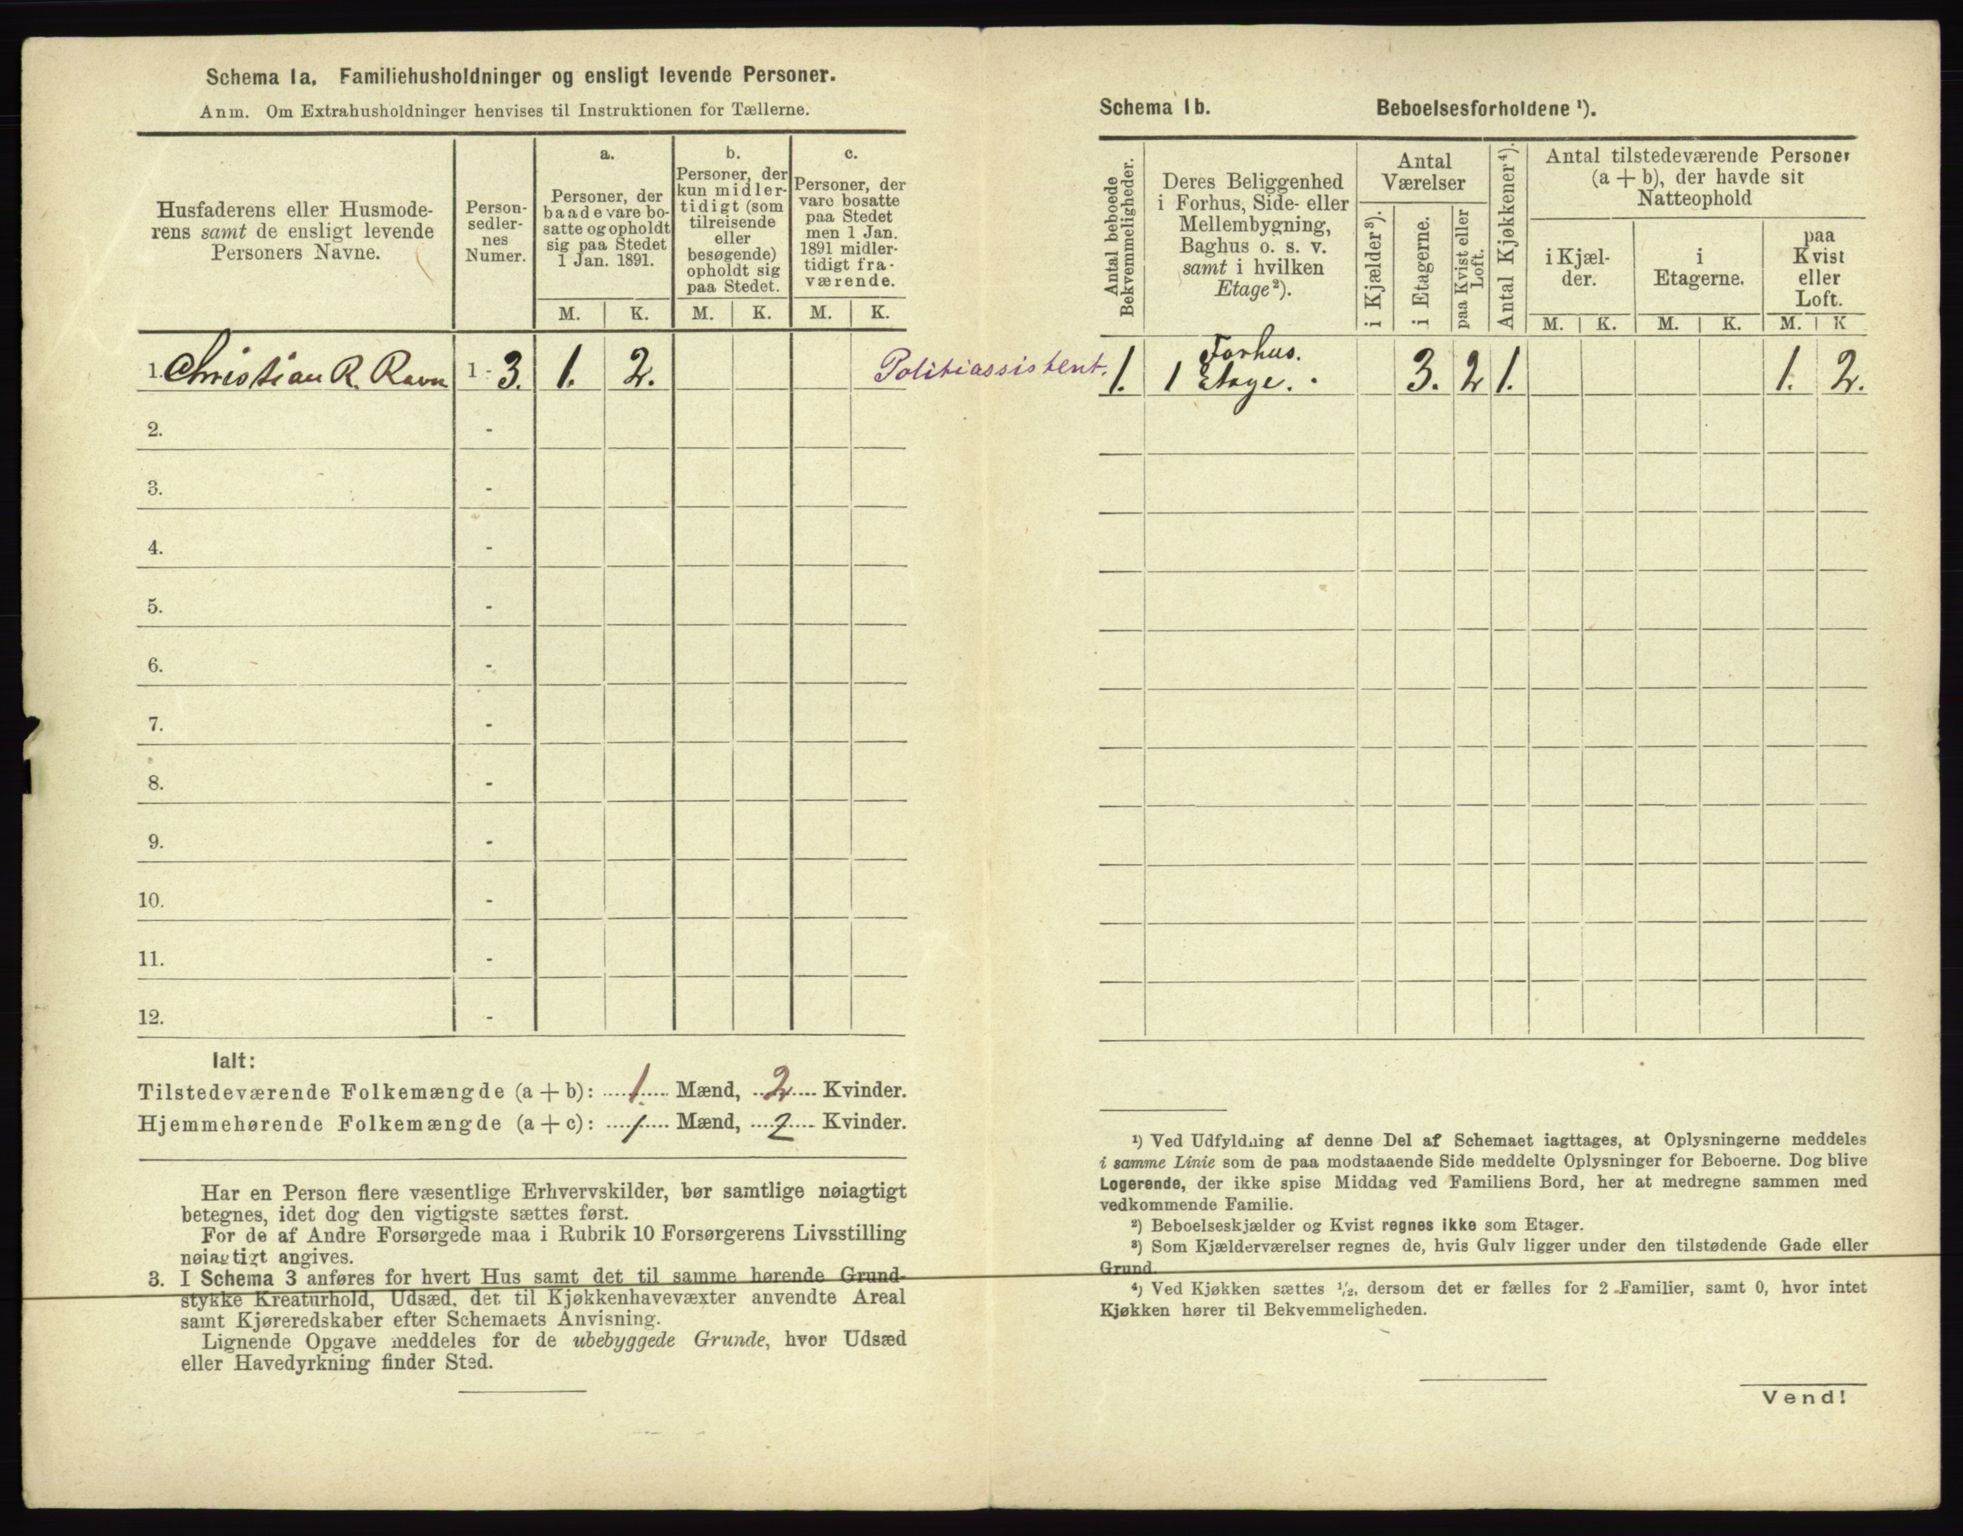 Schema 1a. Familiehusholdninger og ensligt levende Personer.
Anm. Om Extrahusholdninger henvises til Instruktionen for Tællerne.
Husfaderens eller Husmode-
rens samt de ensligt levende
Personers Navne.
Person-
sedler-
nes
Numer.
a.
Personer, der
baade vare bo-
satte og opholdt
sig paa Stedet
1 Jan. 1891.
b.
Personer, der
kun midler-
tidigt (som
tilreisende
eller
besøgende)
opholdt sig
paa Stedet.
c.
Personer, der
vare bosatte
paa Stedet
men 1 Jan.
1891 midler-
tidigt fra-
værende.
M. K. M. K. M. K.
1. Christian R. Ravn 1 - 3. 1. 2. Politiassistent.
2. -
3. -
4. -
5. -
6. -
7. -
8. -
9. -
10. -
11. -
12. -
Ialt:
Tilstedeværende Folkemængde (a + b): 1. Mænd, 2 Kvinder.
Hjemmehørende Folkemængde (a + c): 1 Mænd, 2 Kvinder.
Har en Person flere væsentlige Erhvervskilder, bør samtlige nøiagtigt
betegnes, idet dog den vigtigste sættes først.
For de af Andre Forsørgede maa i Rubrik 10 Forsørgerens Livsstilling
nøiagtigt angives.
3. I Schema 3 anføres for hvert Hus samt det til samme hørende Grund-
stykke Kreaturhold, Udsæd, det til Kjøkkenhavevæxter anvendte Areal
samt Kjøreredskaber efter Schemaets Anvisning.
Lignende Opgave meddeles for de ubebyggede Grunde, hvor Udsæd
eller Havedyrkning finder Sted.
Schema 1b. Beboelsesforholdene ¹).
Antal beboede
Bekvemmeligheder.
Deres Beliggenhed
i Forhus, Side- eller
Mellembygning,
Baghus o. s. v.
samt i hvilken
Etage²).
Antal
Værelser
i Kjælder³).
i Etagerne.
paa Kvist eller
Loft.
Antal Kjøkkener⁴).
Antal tilstedeværende Personer
(a + b), der havde sit
Natteophold
i Kjæl-
der.
i
Etagerne.
paa
Kvist
eller
Loft.
M. K. M. K. M. K
1. Forhus.
1 Etage. 3. 2 1. 1. 2.
¹) Ved Udfyldning af denne Del af Schemaet iagttages, at Oplysningerne meddeles
i samme Linie som de paa modstaaende Side meddelte Oplysninger for Beboerne. Dog blive
Logerende, der ikke spise Middag ved Familiens Bord, her at medregne sammen med
vedkommende Familie.
²) Beboelseskjælder og Kvist regnes ikke som Etager.
³) Som Kjælderværelser regnes de, hvis Gulv ligger under den tilstødende Gade eller
Grund.
⁴) Ved Kjøkken sættes ½, dersom det er fælles for 2 Familier, samt 0, hvor intet
Kjøkken hører til Bekvemmeligheden.
Vend!